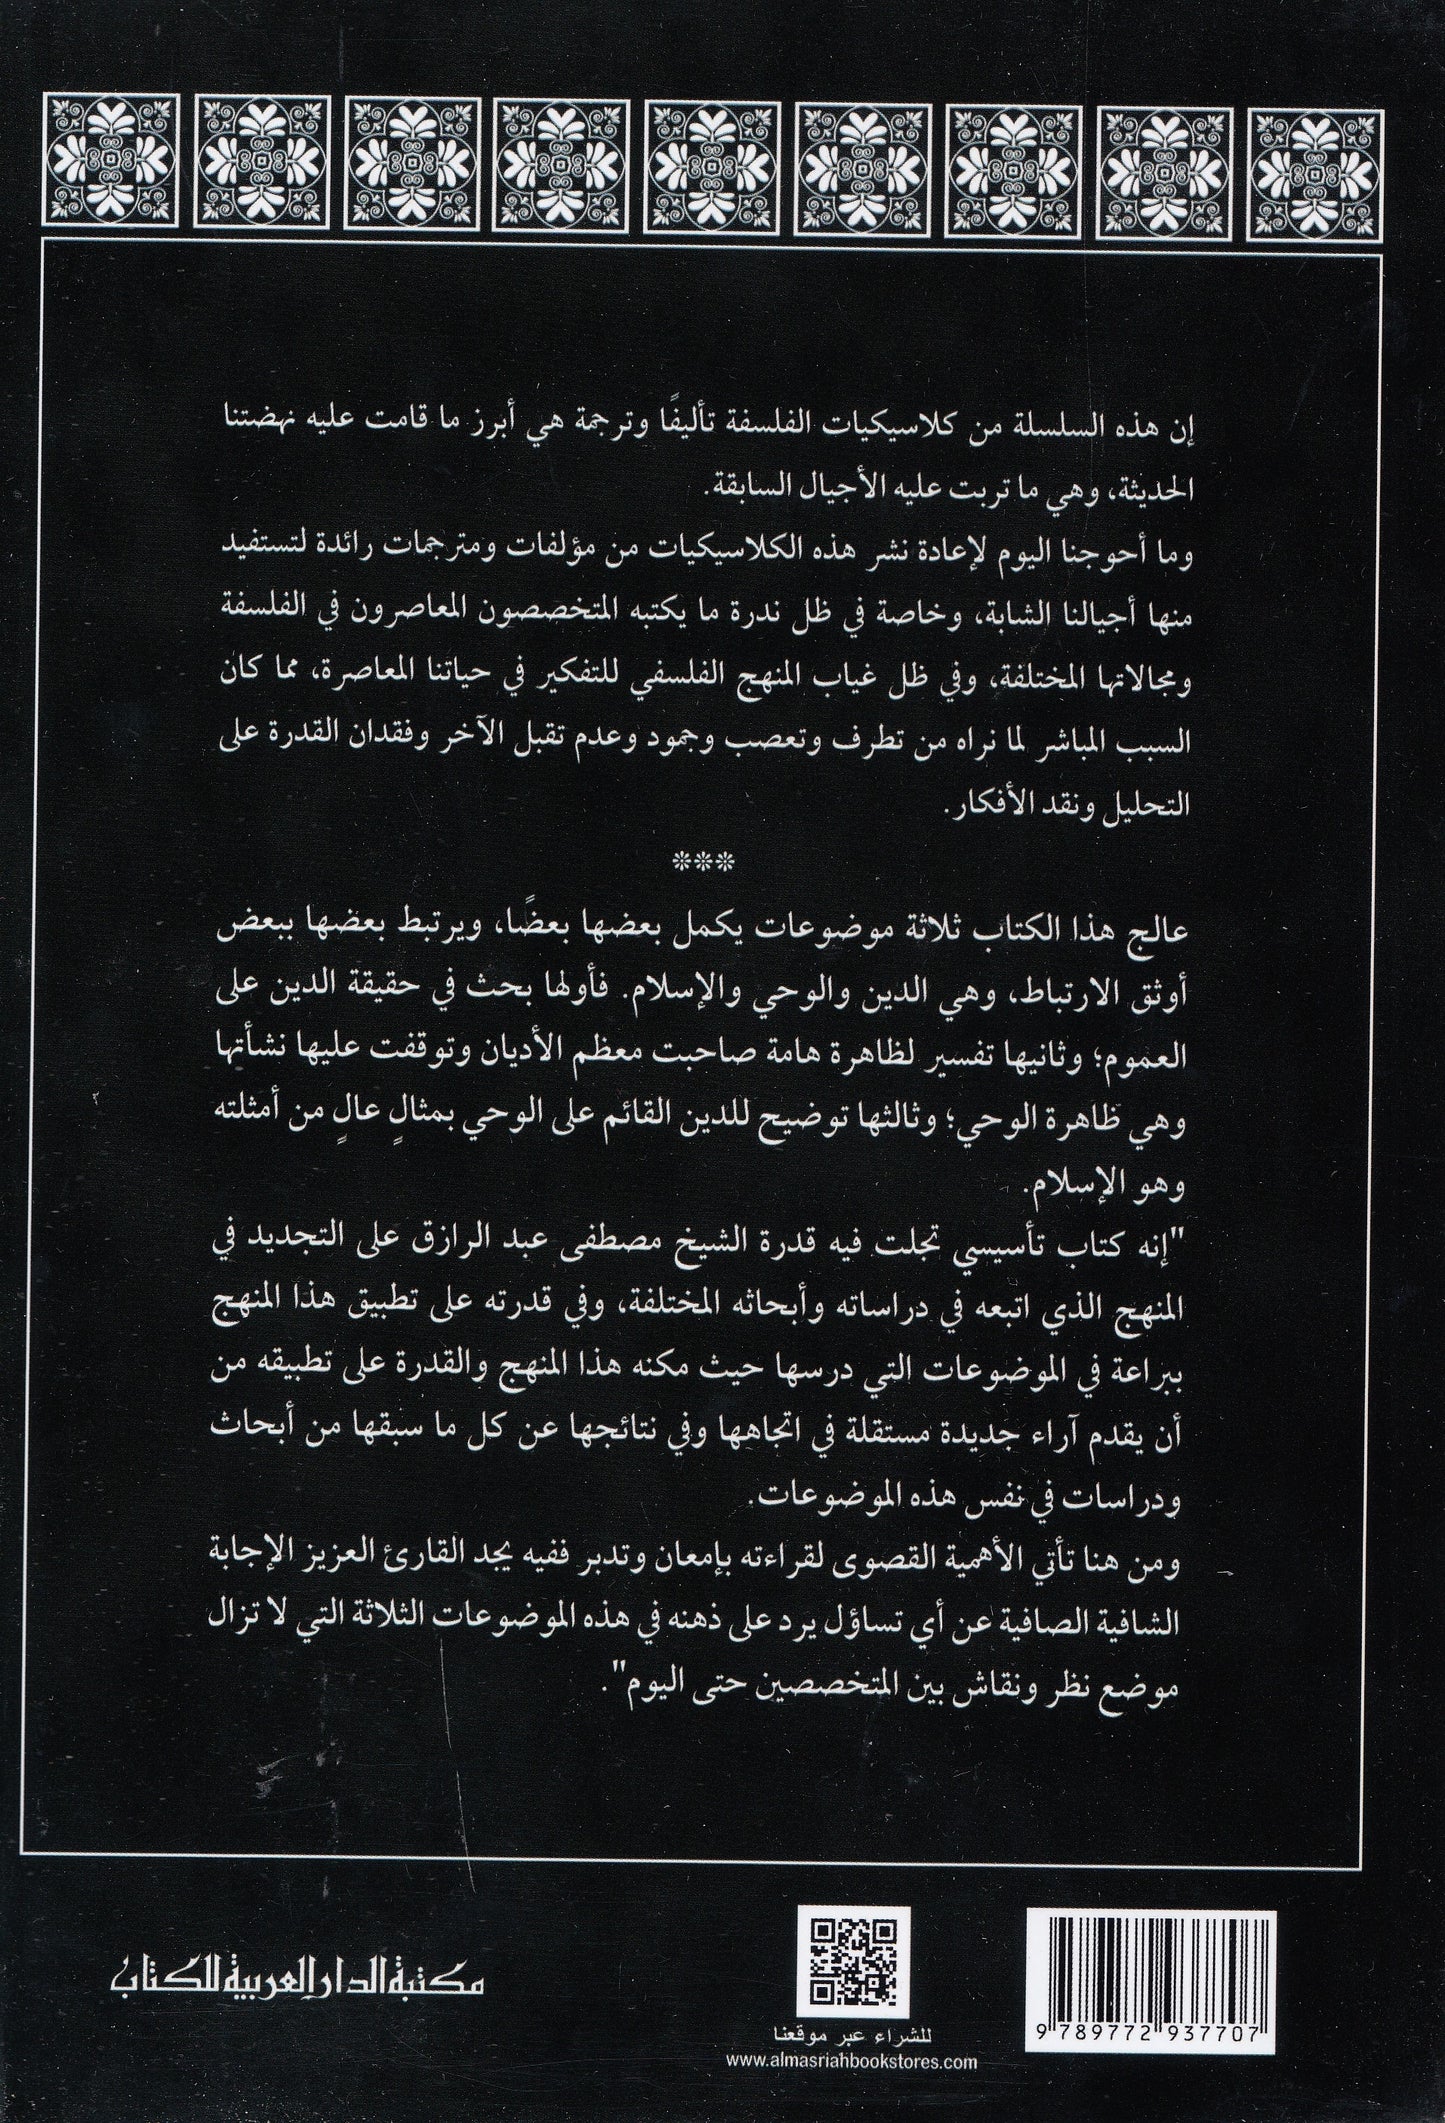 إن هذه السلسلة من كلاسيكيات الفلسفة تأليفًا وترجمة هي أبرز ما قامت عليه نهضتنا
الحديثة، وهي ما تربت عليه الأجيال السابقة.
وما أحوجنا اليوم لإعادة نشر هذه الكلاسيكيات من مؤلفات ومترجمات رائدة لتستفيد
منها أجيالنا الشابة، وخاصة في ظل ندرة ما يكتبه المتخصصون المعاصرون في الفلسفة
ومجالاتها المختلفة، وفي ظل غياب المنهج الفلسفي للتفكير في حياتنا المعاصرة، مما كان
السبب المباشر لما نراه من تطرف وتعصب وجمود وعدم تقبل الآخر وفقدان القدرة على
التحليل ونقد الأفكار.
***
عالج هذا الكتاب ثلاثة موضوعات يكمل بعضها بعضًا، ويرتبط بعضها ببعض
أوثق الارتباط، وهي الدين والوحي والإسلام. فأولها بحث في حقيقة الدين على
العموم؛ وثانيها تفسير لظاهرة هامة صاحبت معظم الأديان وتوقفت عليها نشأتها
وهي ظاهرة الوحي؛ وثالثها توضيح للدين القائم على الوحي بمثالٍ عالٍ من أمثلته
وهو الإسلام.
"إنه كتاب تأسيسي تجلت فيه قدرة الشيخ مصطفى عبد الرازق على التجديد في
المنهج الذي اتبعه في دراساته وأبحاثه المختلفة، وفي قدرته على تطبيق هذا المنهج
ببراعة في الموضوعات التي درسها حيث مكنه هذا المنهج والقدرة على تطبيقه من
أن يقدم آراء جديدة مستقلة في اتجاهها وفي نتائجها عن كل ما سبقها من أبحاث
ودراسات في نفس هذه الموضوعات.
ومن هنا تأتي الأهمية القصوى لقراءته بإمعان وتدبر ففيه يجد القارئ العزيز الإجابة
الشافية الصافية عن أي تساؤل يرد على ذهنه في هذه الموضوعات الثلاثة التي لا تزال
موضع نظر ونقاش بين المتخصصين حتى اليوم".
مكتبة الدار العربية للكتاب
للشراء عبر موقعنا
www.almasriahbookstores.com
9 789772 937707